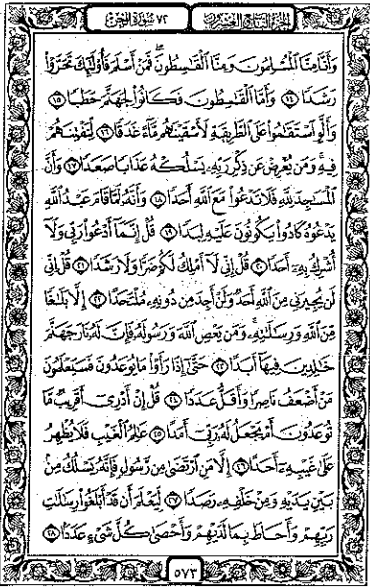 الجزء التاسع والعشرون ٧٢ سورة الجن
وَأَنَّا مِنَّا ٱلْمُسْلِمُونَ وَمِنَّا ٱلْقَٰسِطُونَ ۖ فَمَنْ أَسْلَمَ فَأُو۟لَٰٓئِكَ تَحَرَّوْا۟
رَشَدًا ﴿١٤﴾ وَأَمَّا ٱلْقَٰسِطُونَ فَكَانُوا۟ لِجَهَنَّمَ حَطَبًا ﴿١٥﴾
وَأَلَّوِ ٱسْتَقَٰمُوا۟ عَلَى ٱلطَّرِيقَةِ لَأَسْقَيْنَٰهُم مَّآءً غَدَقًا ﴿١٦﴾ لِّنَفْتِنَهُمْ
فِيهِ ۚ وَمَن يُعْرِضْ عَن ذِكْرِ رَبِّهِۦ يَسْلُكْهُ عَذَابًا صَعَدًا ﴿١٧﴾ وَأَنَّ
ٱلْمَسَٰجِدَ لِلَّهِ فَلَا تَدْعُوا۟ مَعَ ٱللَّهِ أَحَدًا ﴿١٨﴾ وَأَنَّهُۥ لَمَّا قَامَ عَبْدُ ٱللَّهِ
يَدْعُوهُ كَادُوا۟ يَكُونُونَ عَلَيْهِ لِبَدًا ﴿١٩﴾ قُلْ إِنَّمَآ أَدْعُوا۟ رَبِّى وَلَآ
أُشْرِكُ بِهِۦٓ أَحَدًا ﴿٢٠﴾ قُلْ إِنِّى لَآ أَمْلِكُ لَكُمْ ضَرًّا وَلَا رَشَدًا ﴿٢١﴾ قُلْ إِنِّى
لَن يُجِيرَنِى مِنَ ٱللَّهِ أَحَدٌ وَلَنْ أَجِدَ مِن دُونِهِۦ مُلْتَحَدًا ﴿٢٢﴾ إِلَّا بَلَٰغًا
مِّنَ ٱللَّهِ وَرِسَٰلَٰتِهِۦ ۚ وَمَن يَعْصِ ٱللَّهَ وَرَسُولَهُۥ فَإِنَّ لَهُۥ نَارَ جَهَنَّمَ
خَٰلِدِينَ فِيهَآ أَبَدًا ﴿٢٣﴾ حَتَّىٰٓ إِذَا رَأَوْا۟ مَا يُوعَدُونَ فَسَيَعْلَمُونَ
مَنْ أَضْعَفُ نَاصِرًا وَأَقَلُّ عَدَدًا ﴿٢٤﴾ قُلْ إِنْ أَدْرِىٓ أَقَرِيبٌ مَّا
تُوعَدُونَ أَمْ يَجْعَلُ لَهُۥ رَبِّىٓ أَمَدًا ﴿٢٥﴾ عَٰلِمُ ٱلْغَيْبِ فَلَا يُظْهِرُ
عَلَىٰ غَيْبِهِۦٓ أَحَدًا ﴿٢٦﴾ إِلَّا مَنِ ٱرْتَضَىٰ مِن رَّسُولٍ فَإِنَّهُۥ يَسْلُكُ مِنۢ
بَيْنِ يَدَيْهِ وَمِنْ خَلْفِهِۦ رَصَدًا ﴿٢٧﴾ لِّيَعْلَمَ أَن قَدْ أَبْلَغُوا۟ رِسَٰلَٰتِ
رَبِّهِمْ وَأَحَاطَ بِمَا لَدَيْهِمْ وَأَحْصَىٰ كُلَّ شَىْءٍ عَدَدًۢا ﴿٢٨﴾
٥٧٣